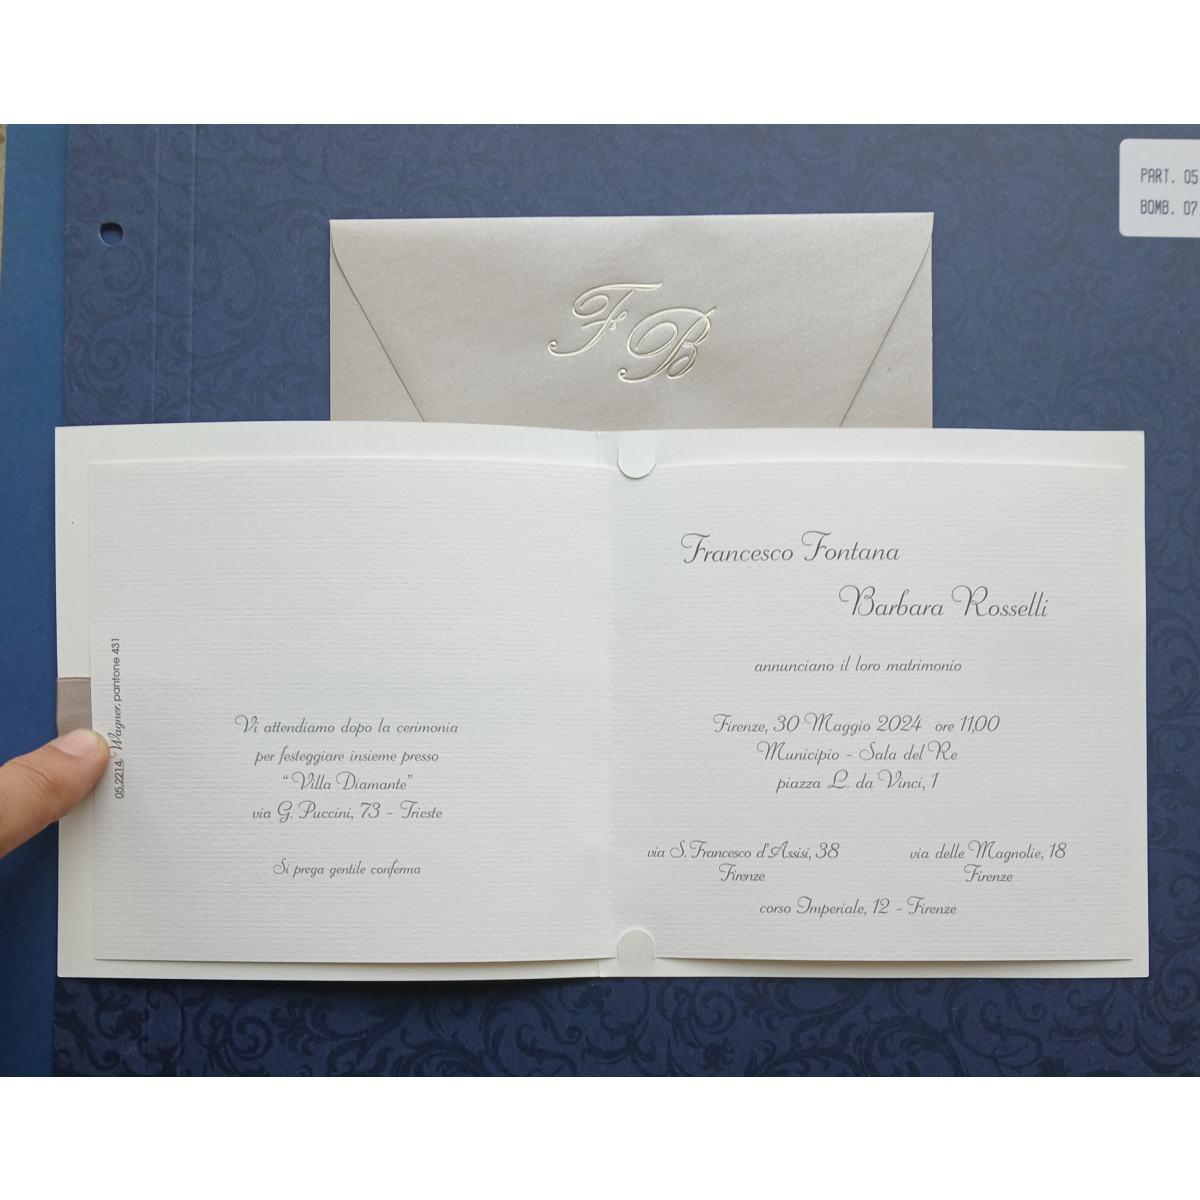 PART. 05
BOMB. 07
F B
05.2214, Wagner, pantone 431
Vi attendiamo dopo la cerimonia
per festeggiare insieme presso
“Villa Diamante”
via G. Puccini, 73 - Trieste
Si prega gentile conferma
Francesco Fontana
Barbara Rosselli
annunciano il loro matrimonio
Firenze, 30 Maggio 2024 ore 11,00
Municipio - Sala del Re
piazza L. da Vinci, 1
via S. Francesco d'Assisi, 38
Firenze
via delle Magnolie, 18
Firenze
corso Imperiale, 12 - Firenze